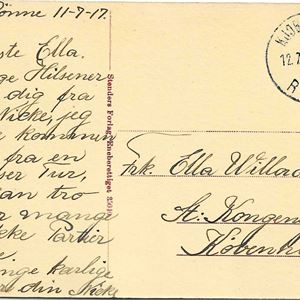 ønne 11-7-17.
ste Ella.
ge Hilsener
dig fra
Nicke, jeg
e kommen
fra en
ser Tur,
an tro
r mange
ke Partier
nge kærlige
din Nicke
Stenders Forlag. Eneberettiget
KJØB
12.7
Frk. Ella Willad
St: Kongen
Københ